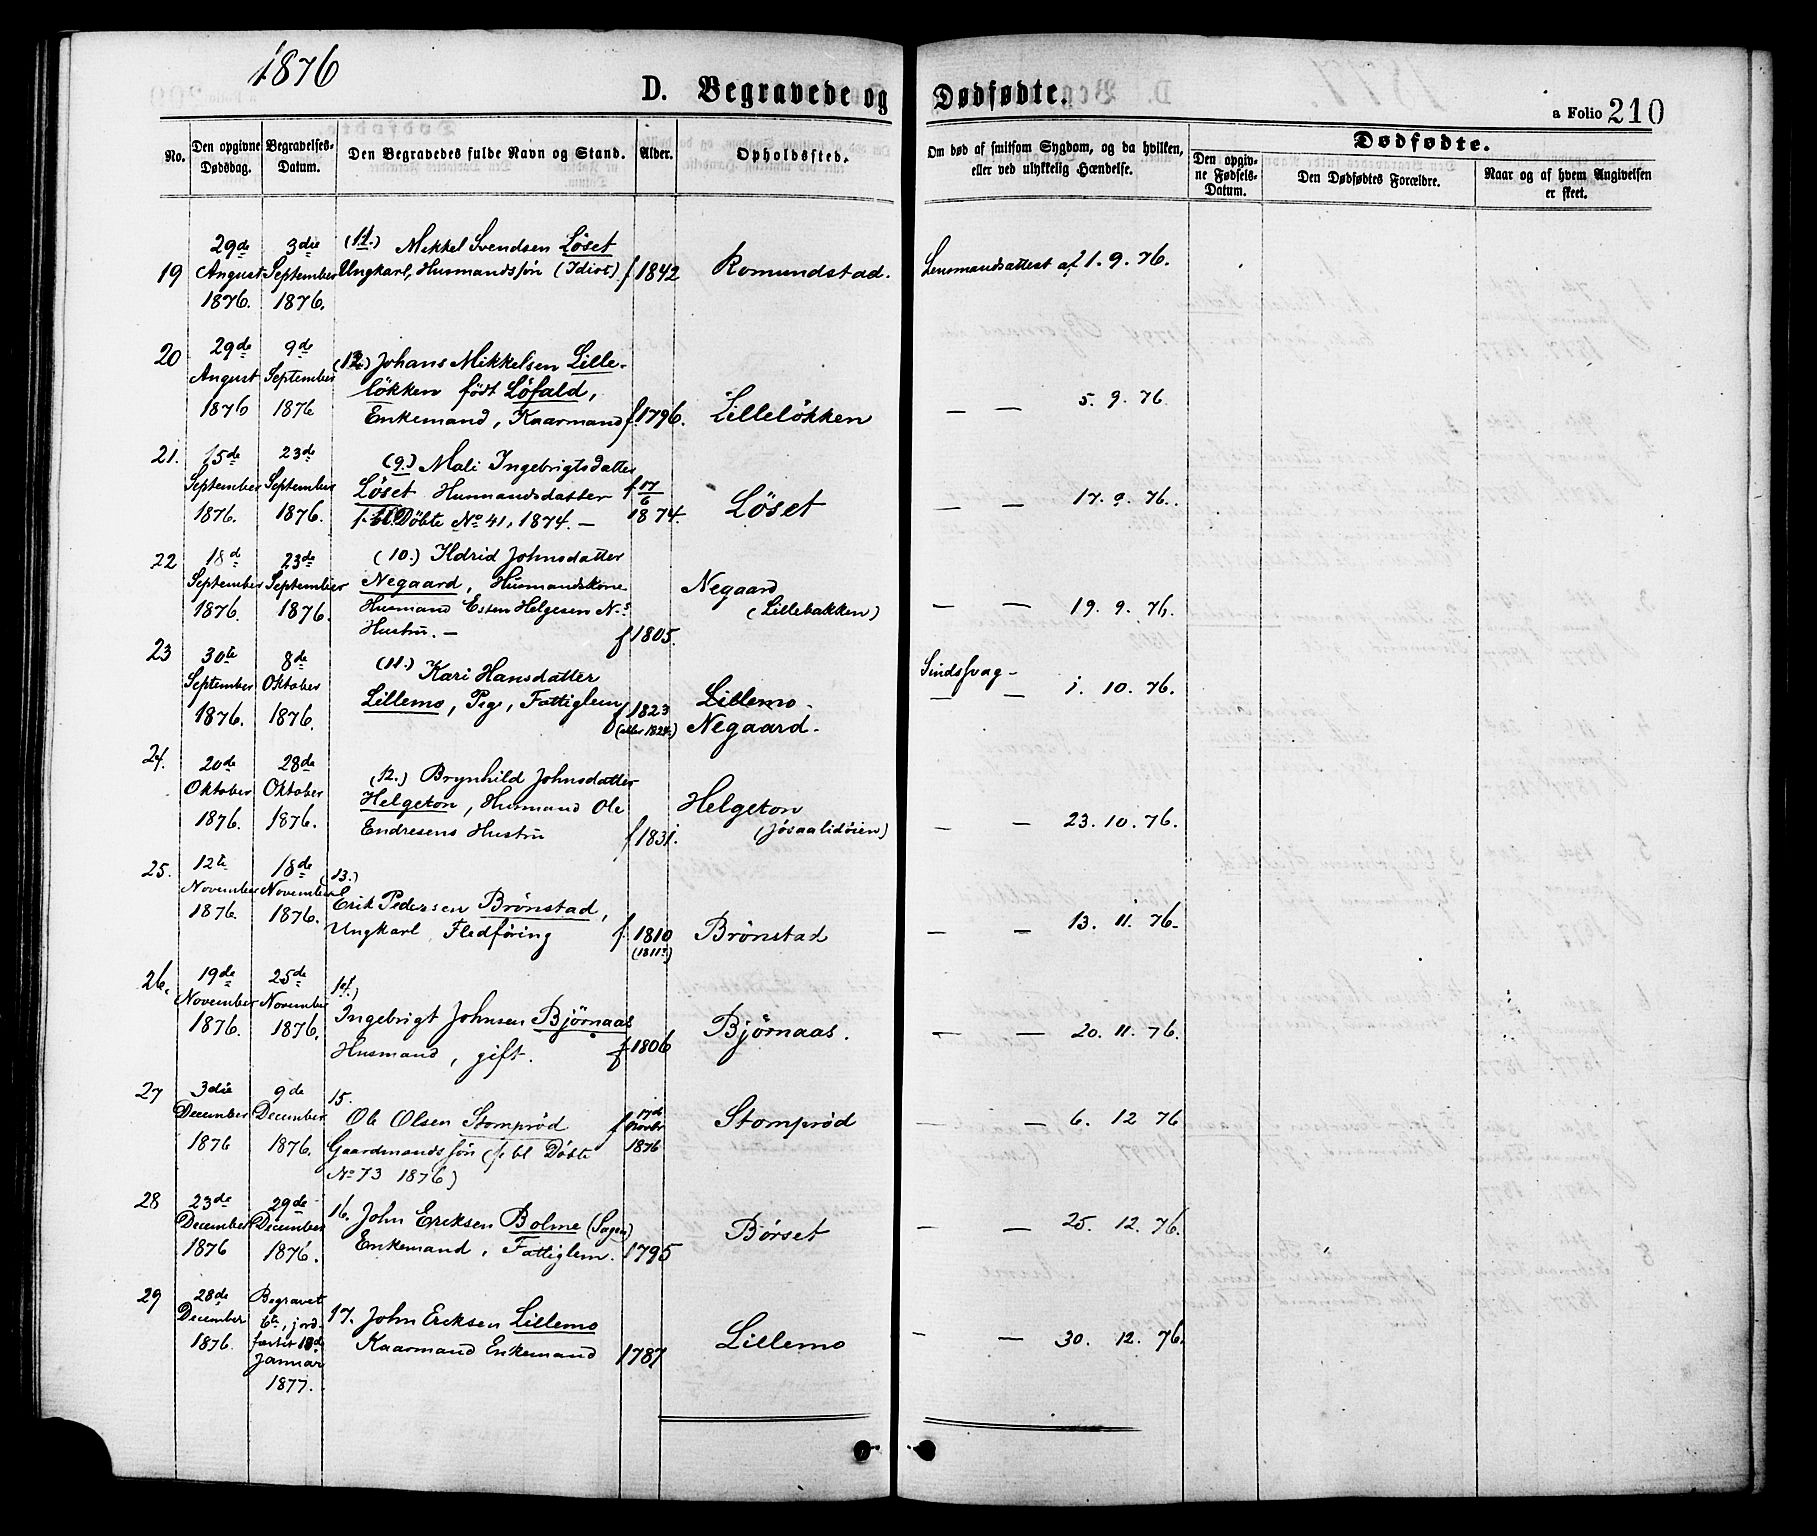 1876
D. Begravede og Dødfødte.
a Folio 210
No.
Den opgivne Dødsdag.
Begravelses-Datum.
Den Begravedes fulde Navn og Stand.
Alder.
Opholdssted.
Om død af smitsom Sygdom, og da hvilken, eller ved ulykkelig Hændelse.
Dødfødte.
Den opgivne Fødsels-Datum.
Den Dødfødtes Forældre.
Naar og af hvem Angivelsen er skeet.
19
29de August 1876.
3die September 1876.
(11.) Mikkel Svendsen Löset
Ungkarl, Husmandssön (Idiot)
f 1842
Romundstad.
Lensmandsattest af 1. 9. 76.
20
29de August 1876
9de September 1876
(12.) Johans Mikkelsen Lille-
lökken födt Löfald,
Enkemand, Kaarmand
f. 1796.
Lillelökken
— — 5. 9. 76.
21.
15de September 1876.
23de September 1876.
(9.) Mali Ingebrigtsdatter
Löset Husmandsdatter
f. bl. Döbte No 41, 1874. —
f. 17/6 1874.
Löset
— — 17. 9. 76.
22
18d September 1876.
23de September 1876.
(10.) Ildrid Johnsdatter
Negaard, Husmandskone
Husmand Esten Helgesen N.s
Hustru. —
f 1805.
Negaard
(Lillebakken)
— — 19. 9. 76.
23
30te September 1876.
8de Oktober 1876.
(11.) Kari Hansdatter
Lillemo, Pige, Fattiglem
f 1823
(eller 1824)
Lillemo-
Negaard.
Sindssvag —
— — 1. 10. 76.
24.
20de Oktober 1876.
28de Oktober 1876.
(12.) Brynhild Johnsdatter
Helgeton, Husmand Ole
Endresens Hustru
f 1831.
Helgeton
(Jösaalidöien)
— — 23. 10. 76.
25.
12te November 1876.
18de November 1876.
(13.)
Erik Pedersen Brönstad,
Ungkarl, Fledföring
f. 1810
(1811?)
Brönstad
— — 13. 11. 76.
26.
19de November 1876.
25de November 1876.
14.)
Ingebrigt Johnsen Björnaas
Husmand, gift.
f 1806
Björnaas.
— — 20. 11. 76.
27
3die December 1876
9de December 1876.
15.
Ole Olsen Stompröd
Gaardmandssön (f. bl Döbte
No 73 1876)
f 17de Novbr 1876
Stompröd
— — 6. 12 76
28
23de December 1876
29de December 1876.
16. John Eriksen Bolme (Sagen)
Enkemand, Fattiglem.
1795
Börset
— — 25. 12. 76.
29
28de December 1876.
Begravet
6te, jord-
fæstet 10de
Januar
1877.
17. John Ericksen Lillemo
Kaarmand Enkemand
1787
Lillemo
— — 30. 12. 76.